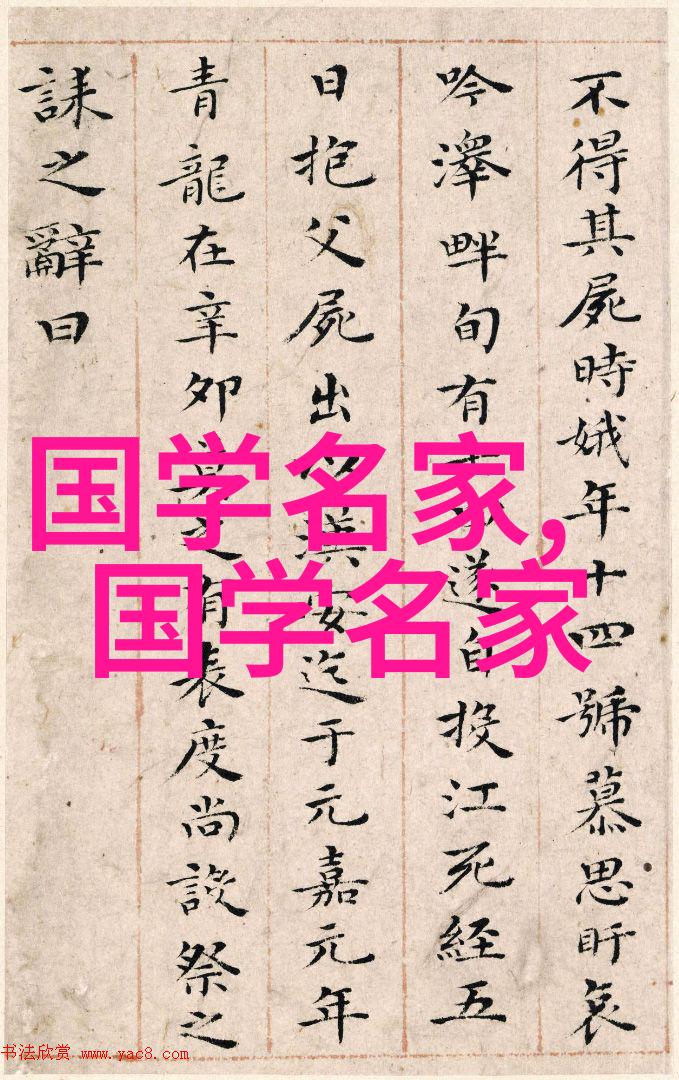 不得其屍時娥年十四號慕思盱哀
吟澤畔旬有遂自投江死經五
日抱父屍出以漢安迄于元嘉元年
青龍在辛卯莫之有表度尚設祭之
誄之辭曰
国学名家,
国学名家
书法欣赏 www.yac8.com